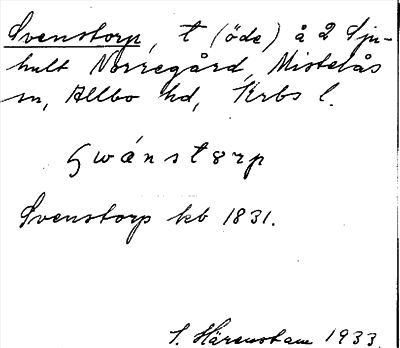 Svenstorp, t (öde) å 2 Sju-
hult Norregård, Mistelås
sn, Allbo hd, Krbs l.
svánstorp
Svenstorp kb 1831.
S. Härenstam 1933.